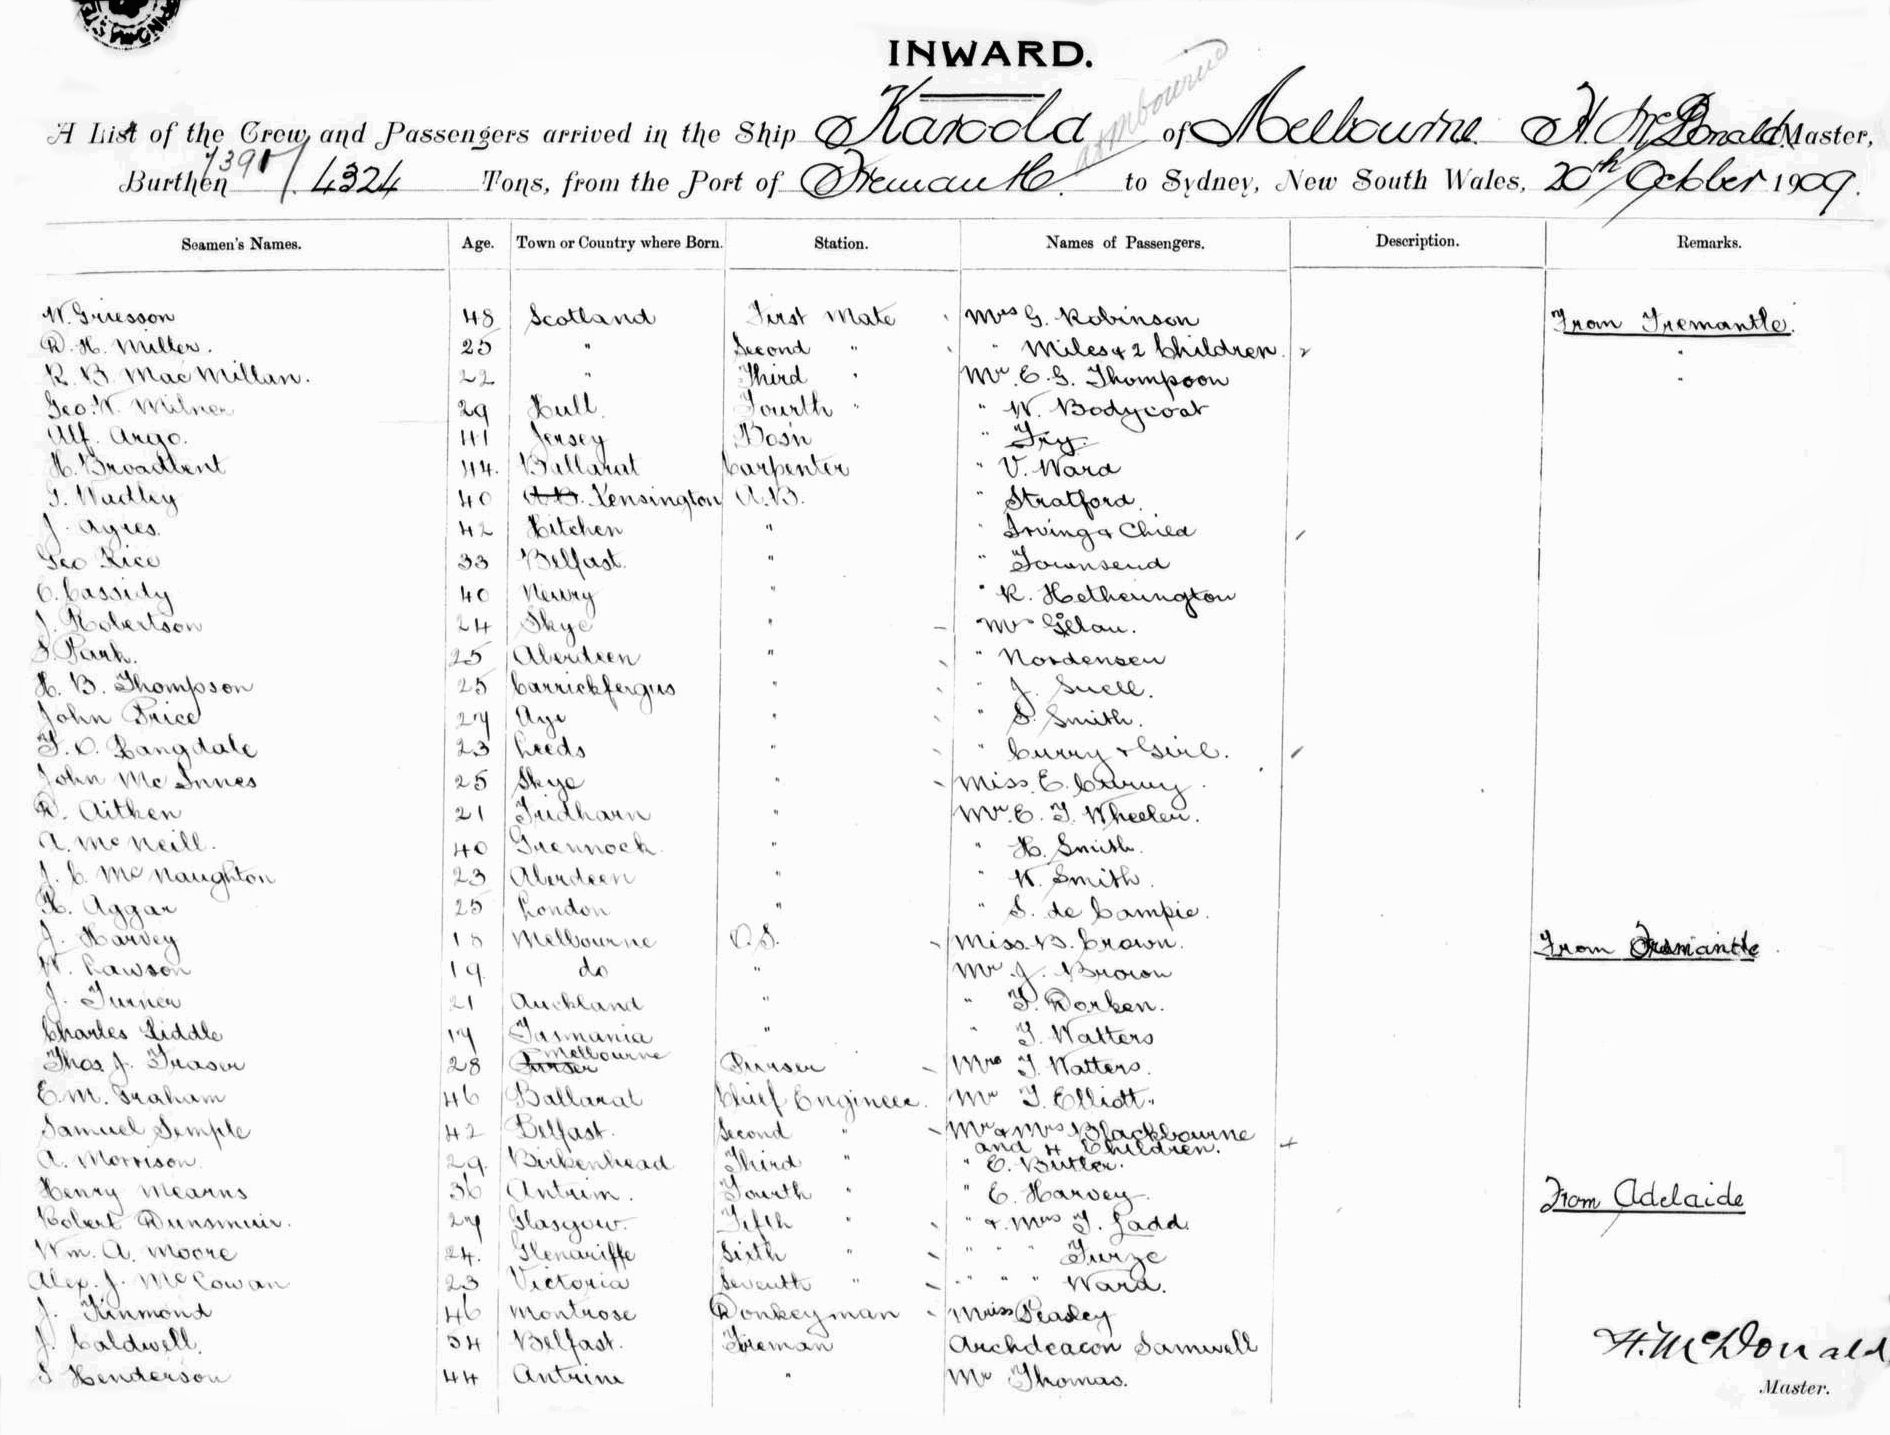 INWARD.
A List of the Crew and Passengers arrived in the Ship Karoola of Melbourne H. McDonald Master,
Burthen 7391/4324 Tons, from the Port of Fremantle to Sydney, New South Wales, 20th October 1909.
Seamen's Names. Age. Town or Country where Born. Station. Names of Passengers. Description. Remarks.
W. Griesson 48 Scotland First Mate Mrs G. Robinson From Fremantle.
D. H. Miller. 25 " Second " " Miles & 2 Children. "
R. B. MacMillan. 22 " Third " Mr. E. G. Thompson "
Geo. W. Milner 29 Hull. Fourth " " W. Bodycoat
Alf. Argo. 41 Jersey Bos'n " Fry.
H. Broadbent 44. Ballarat Carpenter " V. Ward
G. Wadley 40 A.B. Kensington A.B. " Stratford.
J. Ayres. 42 Hitchen " " Irving & Child
Geo Rice 33 Belfast. " " Townsend
C. Cassidy 40 Newry " " R. Hetherington
J. Robertson 24 Skye " Mrs
S. Park. 25 Aberdeen " " Nordensen
H. B. Thompson 25 Carrickfergus " " J. Snell.
John Price 27 Ayr " " S. Smith.
T. O. Langdale 23 Leeds " " Curry & Girl.
John McInnes 25 Skye " Miss. E. Curry.
D. Aitken 21 " Mr. E. T. Wheeler.
A. McNeill. 40 Greenock " " H. Smith.
J. C. McNaughton 23 Aberdeen " " W. Smith.
R. Aggar 25 London " " S. de Campie.
J. Harvey 18 Melbourne O.S. Miss. B. Crown. From Fremantle
W. Lawson 19 do " Mr J. Brown
J. Turner 21 Auckland " " F. Dorken.
Charles Liddle 17 Tasmania " " T. Watters
Melbourne
Thos. J. Fraser 28 Purser Purser Mrs T. Watters.
E. M. Graham 46 Ballarat Chief Engineer. Mr T. Elliott.
Samuel Semple 42 Belfast. Second " Mr & Mrs Blackbourne
and 4 Children.
A. Morrison 29. Birkenhead Third " " E. Butler.
Henry Mearns 36 Antrim. Fourth " " E. Harvey. From Adelaide
Robert Dunsmuir. 27 Glasgow. Fifth " " & Mrs T. Ladd
Wm. A. Moore 24. Glenariffe Sixth " " " " Furze
Alex. J. McCowan 23 Victoria Seventh " " " " Ward.
J. Kinmond 46 Montrose Donkeyman Miss Peasley
J. Caldwell. 54 Belfast. Fireman Archdeacon Samwell
S Henderson 44 Antrim " Mr Thomas.
H. McDonald
Master.